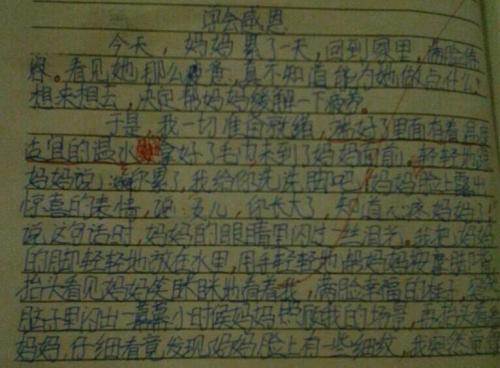 学会感恩
今天，妈妈累了一天，回到家里，满脸疲
惫。看见她那么疲惫，真不知道能为她做点什么。
想来想去，决定帮妈妈缓解一下疲劳。
于是，我一切准备就绪，端好了里面有着温度
适宜的温水，拿好了毛巾来到了妈妈面前，轻轻地
妈妈说：你累了，我给你洗洗脚吧！妈妈脸上露出
惊喜的表情，说：女儿，你长大了，知道心疼妈妈了
说这句话时，妈妈的眼睛里闪过一丝泪光。我把妈妈
的脚轻轻地放在水里，用手轻轻地帮妈妈按摩
抬头看见妈妈笑眯眯地看着我，满脸幸福的样子，
脑子里闪出一幕幕小时候妈妈照顾我的场景，再抬头看
妈妈，仔细看竟发现妈妈脸上有一些细纹，我突然觉